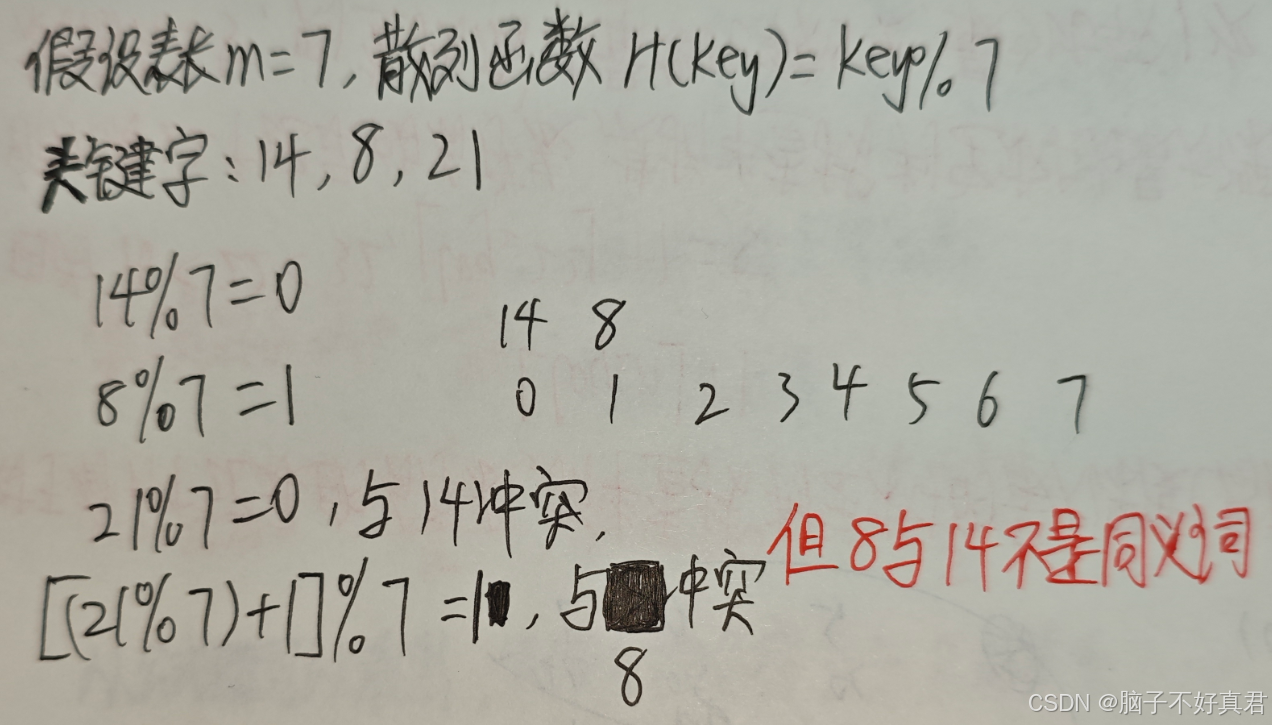 假设表长m=7,散列函数 H(Key)=Key%7
关键字:14,8,21
14%7=0
14 8
8%7=1
0 1 2 3 4 5 6 7
21%7=0,与14冲突.
但8与14不是同义词
[(21%7)+1]%7=1,与 冲突
8
CSDN @脑子不好真君